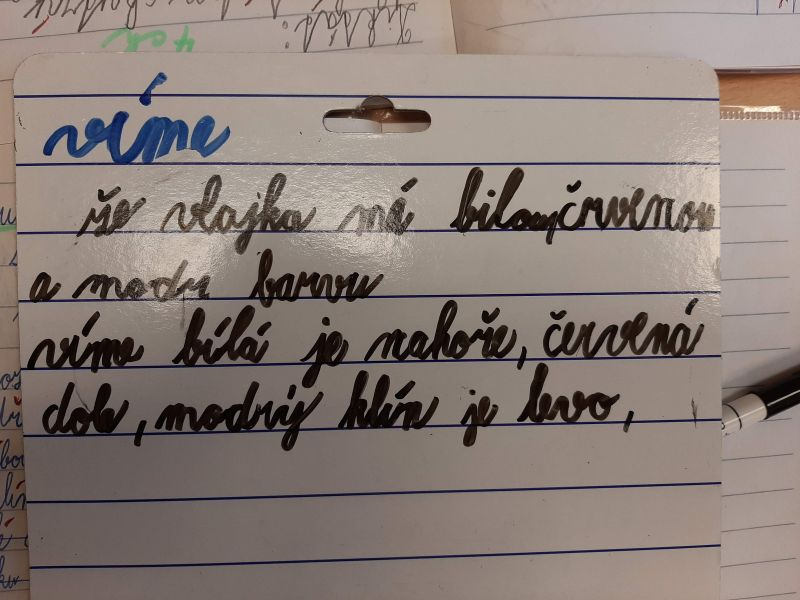 4 ch
víme
že vlajka má bilou, črvenou
a modru barvu
víme bílá je nahoře, červená
dole, modrý klín je levo,